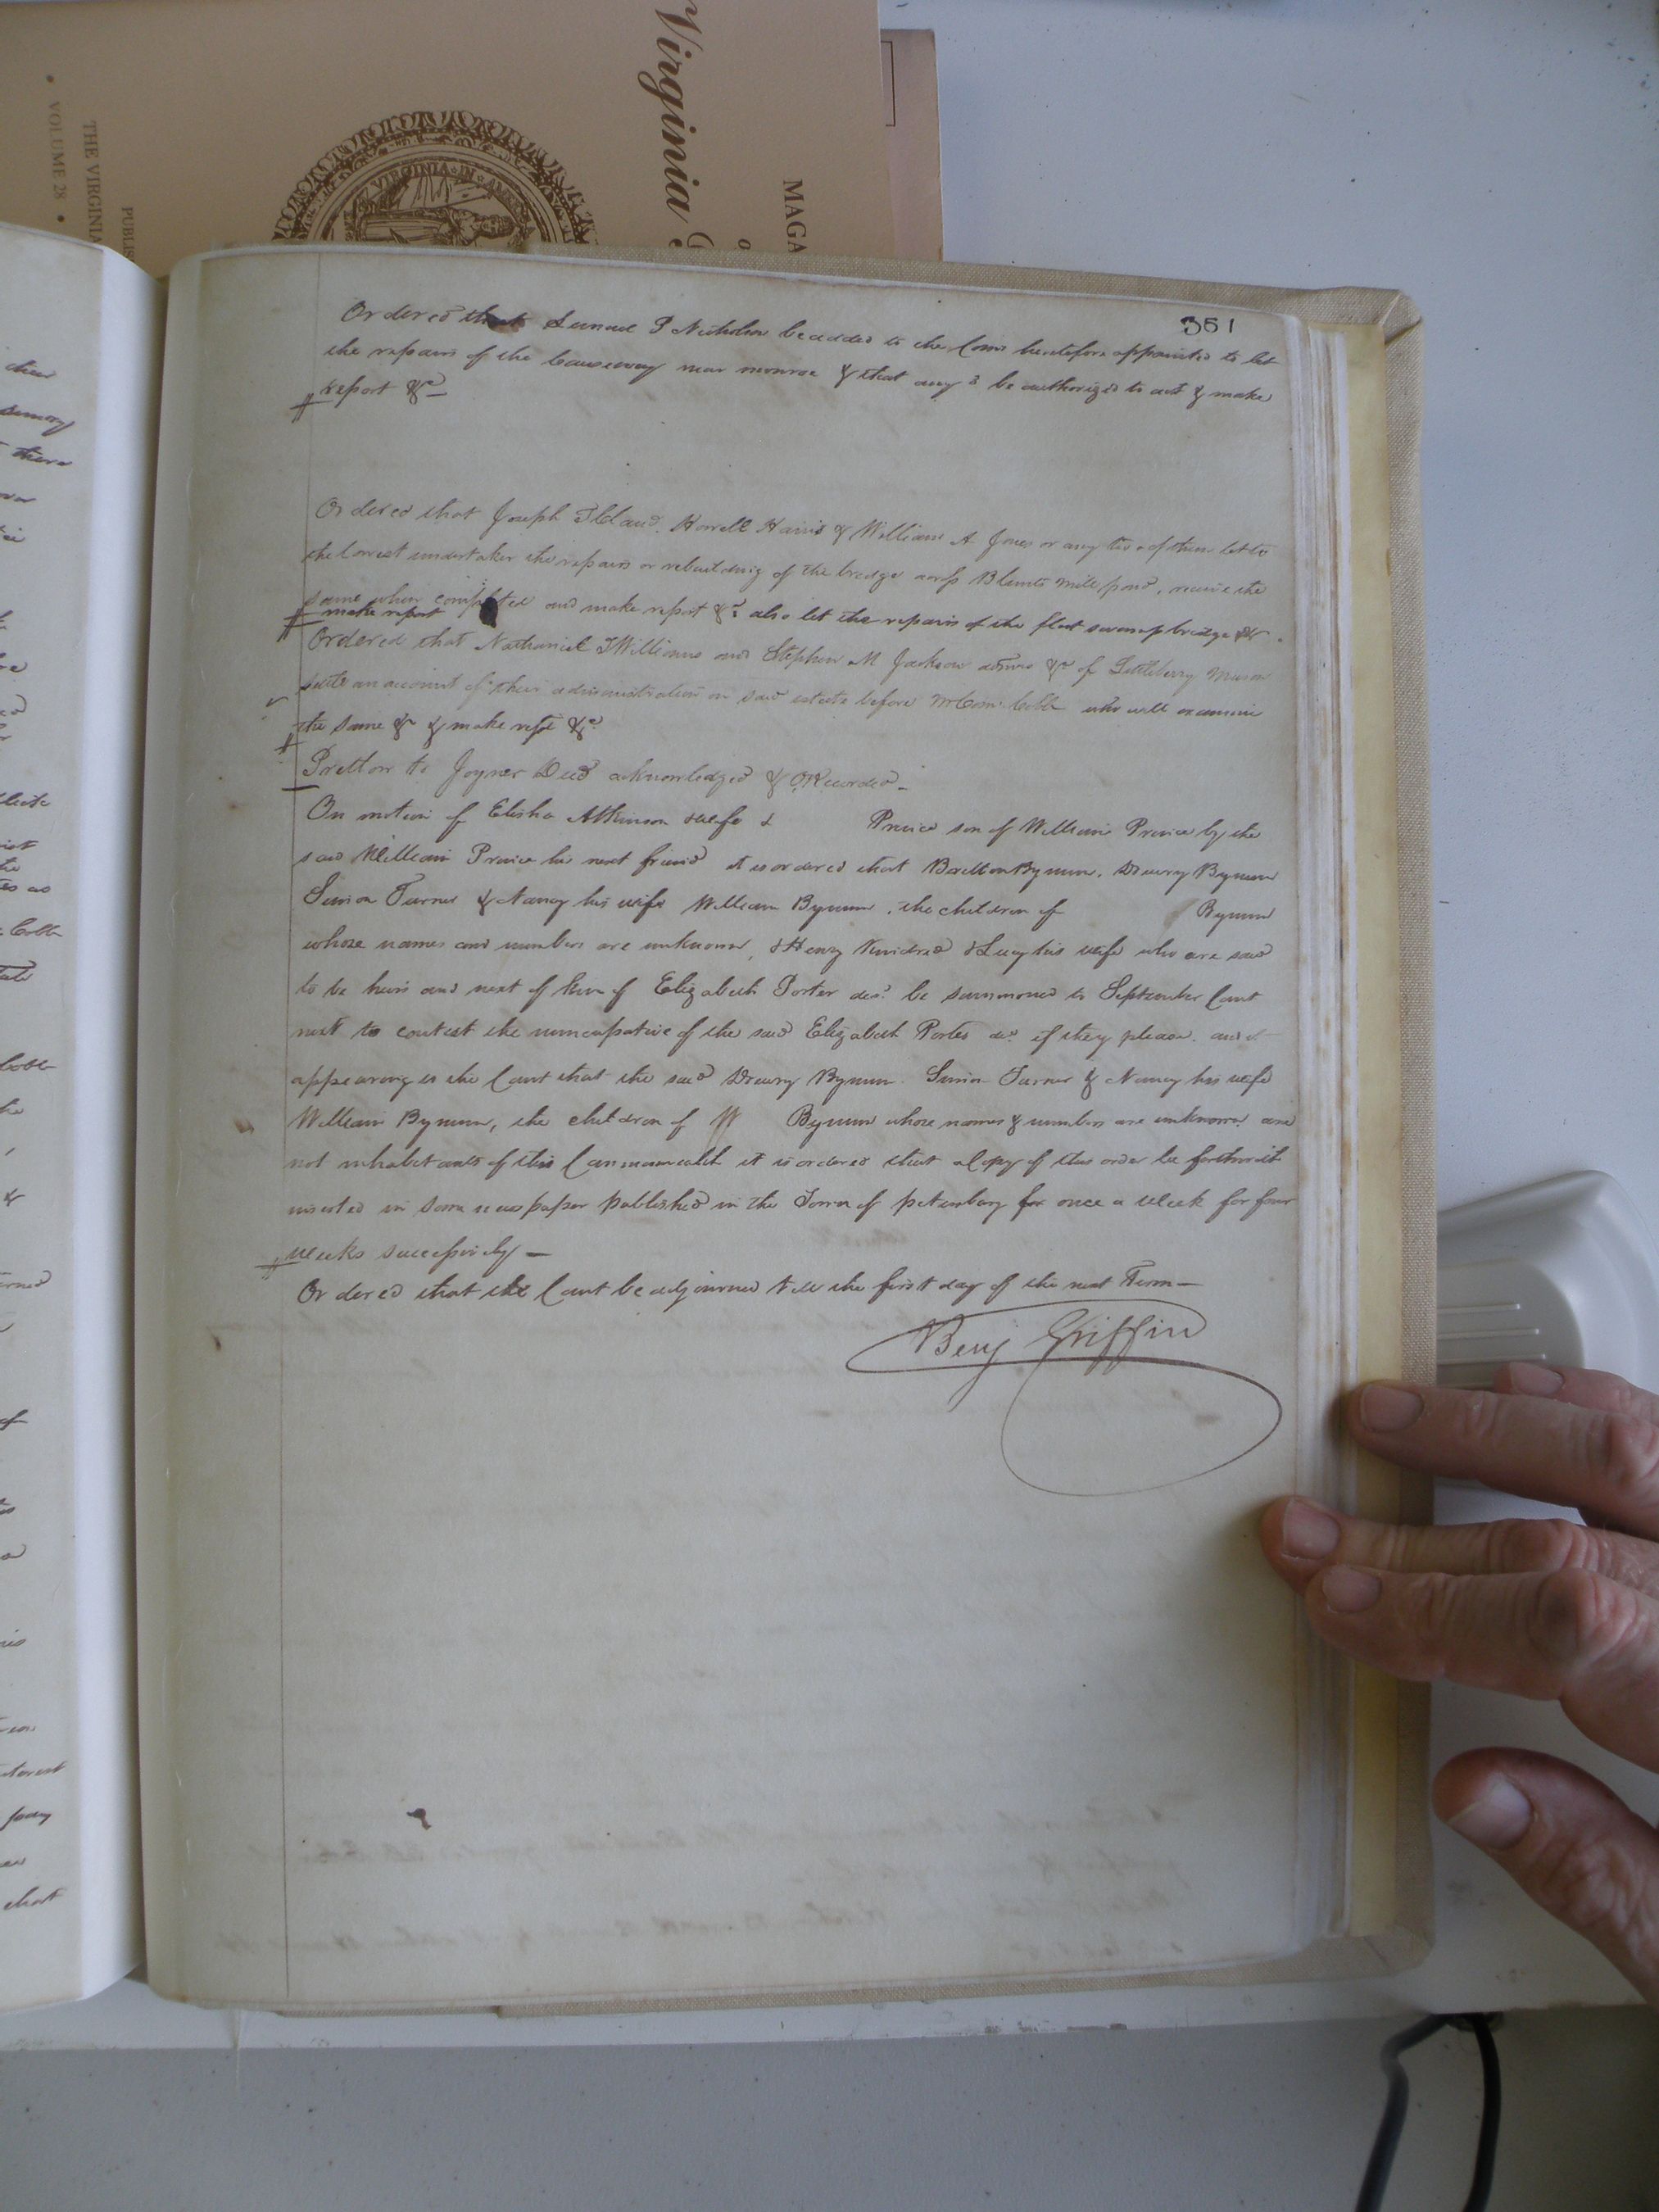 Virginia
MAGA
THE VIRGINIA
VOLUME 28
PUBLIS
VIRGINIA IN
361
Ordered that Lemuel P Nicholson be added to the Coms heretofore appointed to let
the repairs of the Causeway near monroe & that any 3 be authorized to act & make
report &c
Ordered that Joseph T Claud. Howell Harris & William A. Jones or any two of them let to
the lowest undertaker the repairs or rebuilding of the bridge across Blunts mill pond, receive the
same when completed and make report &c also let the repairs of the flat swamp bridge &c
make report
Ordered that Nathaniel T Williams and Stephen M Jackson adms &c of Littleberry Mason
settle an account of their administration on said estate before Cobb who will examine
the same &c & make report &c
Pretlow to Joyner Deed acknowledged & ORecorded
On motion of Elisha Atkinson & wife & son of William by the
said William his next friend it is ordered that Britton Bynum, Drewry Bynum
Simon Turner & Nancy his wife William Bynum, the children of Bynum
whose names and numbers are unknown, & Henry Kindred & Lucy his wife who are said
to be heirs and next of kin of Elizabeth Porter decd. be summoned to September Court
next to contest the nuncupative of the said Elizabeth Porter decd. if they please. and it
appearing to the Court that the said Drewry Bynum. Simon Turner & Nancy his wife
William Bynum, the children of W Bynum whose names & numbers are unknown are
not inhabitants of this Commonwealth it is ordered that a Copy of this order be forthwith
inserted in some newspaper published in the Town of petersburg for once a week for four
weeks successively
Ordered that the Court be adjourned till the first day of the next Term
Benj Griffin